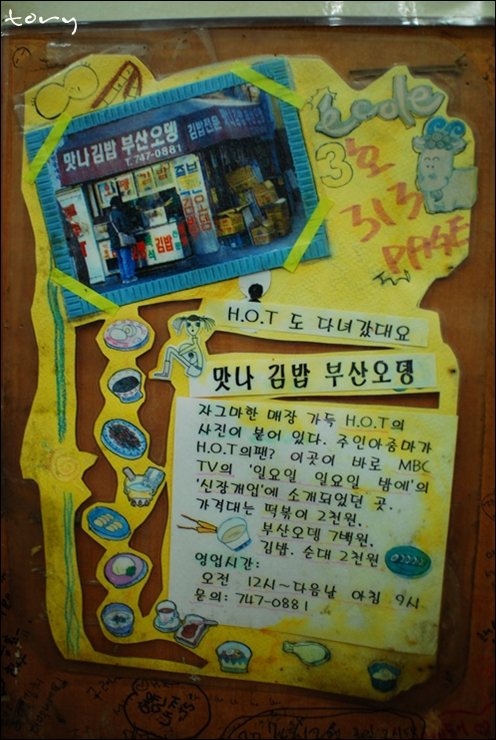 tory
맛나김밥 부산오뎅
T. 747-0881
김밥전문
김밥
ecole
3호
313
PAGE
H.O.T 도 다녀갔대요
맛나 김밥 부산오뎅
자그마한 매장 가득 H.O.T의
사진이 붙어 있다. 주인아줌마가
H.O.T의팬? 이곳이 바로 MBC
TV의 '일요일 일요일 밤에'의
'신장개업'에 소개되었던 곳..
가격대는 떡볶이 2천원,
부산오뎅 7백원,
김밥. 순대 2천원
영업시간:
오전 12시~다음날 아침 9시
문의: 747-0881